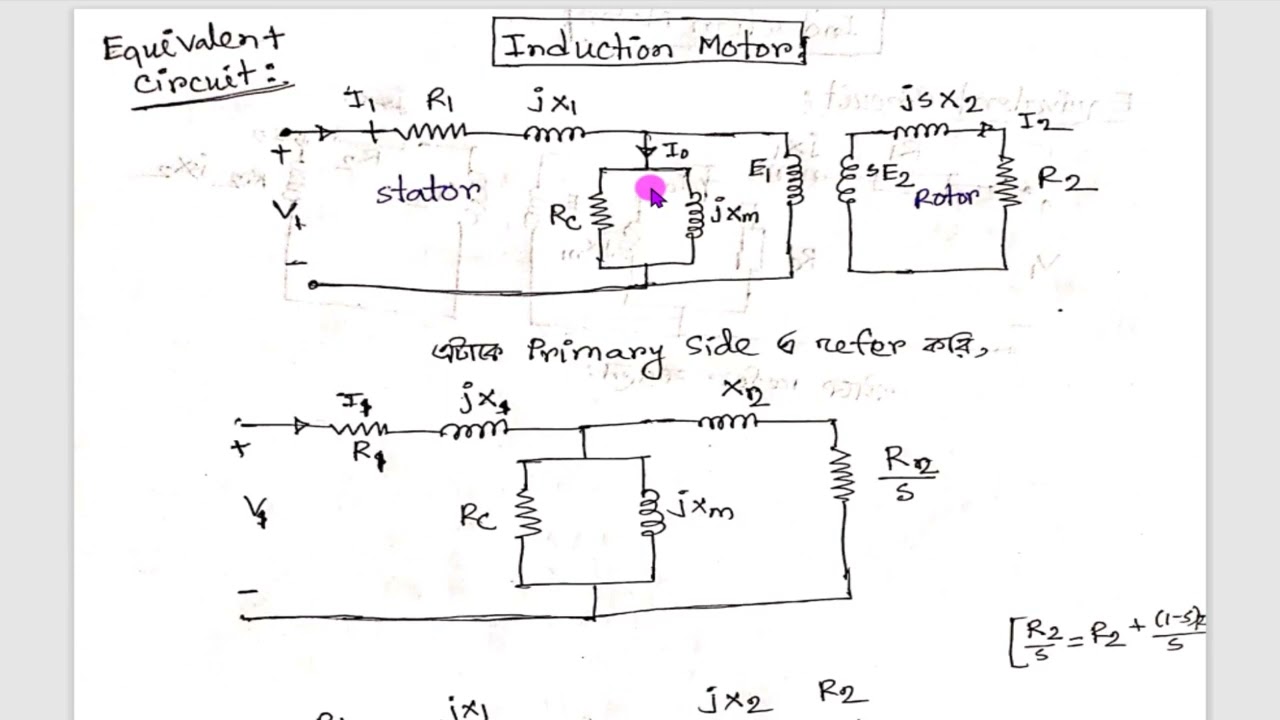 Equivalent
circuit:
Induction Motor:
I1 R1 jx1
jsx2 I2
+ I0
stator
Rc jxm E1 sE2 Rotor R2
V1
-
এটাকে Primary Side এ refer করি,
I1 jx1 x2
+ R1
V1 Rc jxm R2/s
-
[R2/s = R2 + (1-s)R2/s
jx1 jx2 R2